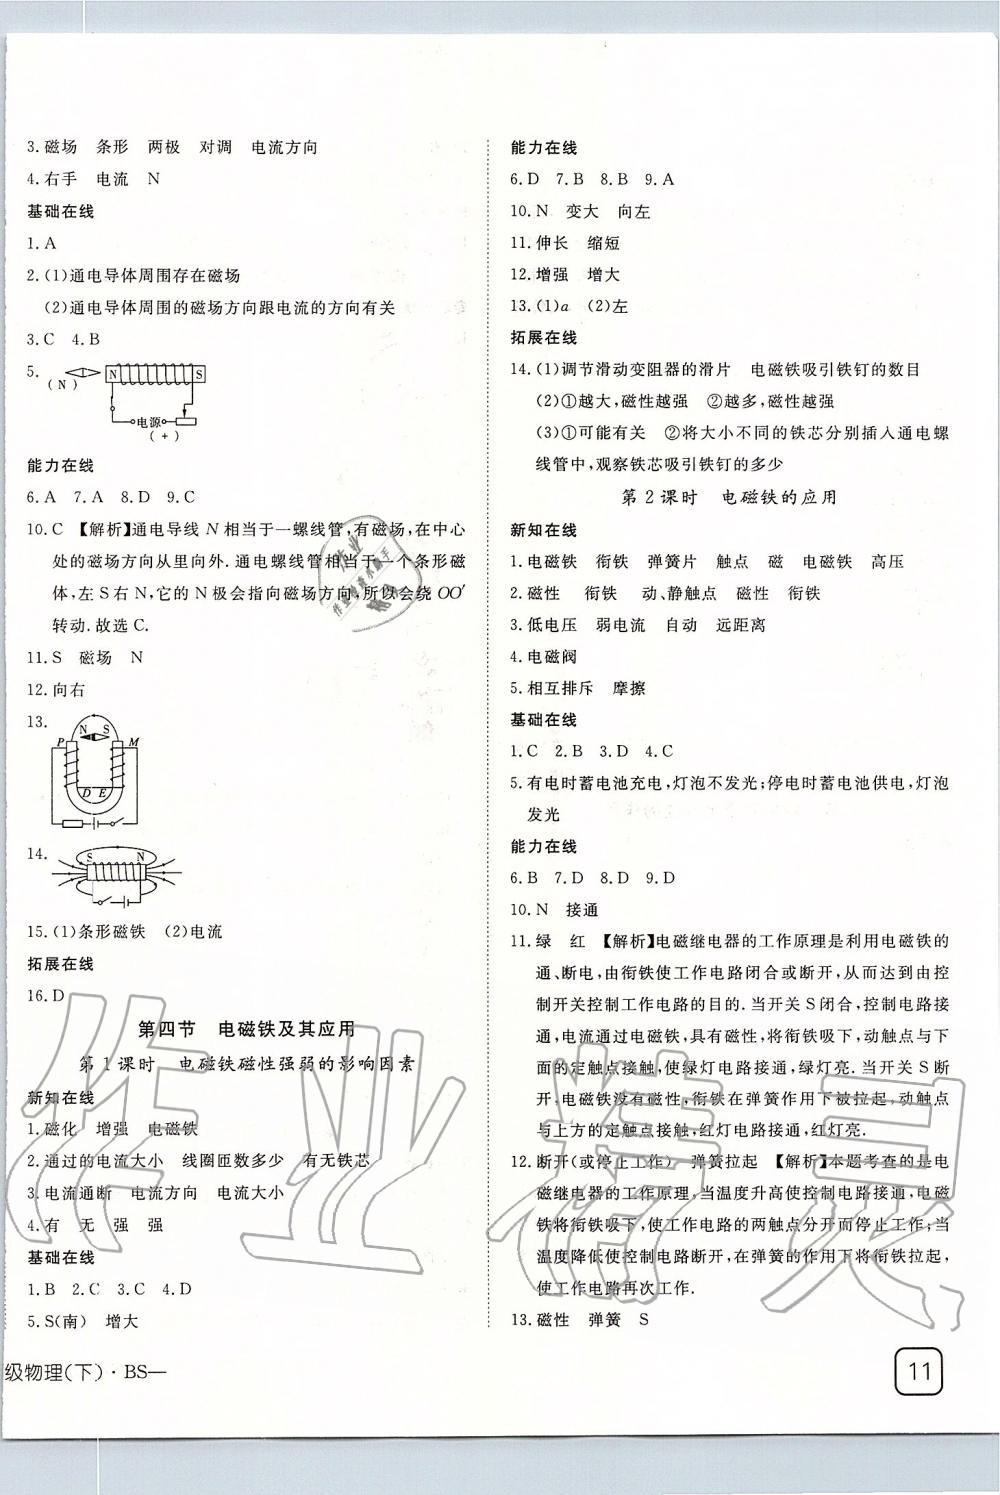 3.磁场　条形　两极　对调　电流方向
4.右手　电流　N
基础在线
1.A
2.(1)通电导体周围存在磁场
(2)通电导体周围的磁场方向跟电流的方向有关
3.C　4.B
5.
(N)
N
S
电源
(+)
能力在线
6.A　7.A　8.D　9.C
10.C　【解析】通电导线N相当于一螺线管,有磁场,在中心
处的磁场方向从里向外.通电螺线管相当于一个条形磁
体,左S右N,它的N极会指向磁场方向,所以会绕OO′
转动.故选C.
11.S　磁场　N
12.向右
13.
N S
P
M
D E
14.
S
N
15.(1)条形磁铁　(2)电流
拓展在线
16.D
第四节　电磁铁及其应用
第1课时　电磁铁磁性强弱的影响因素
新知在线
1.磁化　增强　电磁铁
2.通过的电流大小　线圈匝数多少　有无铁芯
3.电流通断　电流方向　电流大小
4.有　无　强　强
基础在线
1.B　2.C　3.C　4.D
5.S(南)　增大
级物理(下)·BS—
能力在线
6.D　7.B　8.B　9.A
10.N　变大　向左
11.伸长　缩短
12.增强　增大
13.(1)a　(2)左
拓展在线
14.(1)调节滑动变阻器的滑片　电磁铁吸引铁钉的数目
(2)①越大,磁性越强　②越多,磁性越强
(3)①可能有关　②将大小不同的铁芯分别插入通电螺
线管中,观察铁芯吸引铁钉的多少
第2课时　电磁铁的应用
新知在线
1.电磁铁　衔铁　弹簧片　触点　磁　电磁铁　高压
2.磁性　衔铁　动、静触点　磁性　衔铁
3.低电压　弱电流　自动　远距离
4.电磁阀
5.相互排斥　摩擦
基础在线
1.C　2.B　3.D　4.C
5.有电时蓄电池充电,灯泡不发光;停电时蓄电池供电,灯泡
发光
能力在线
6.B　7.D　8.D　9.D
10.N　接通
11.绿　红　【解析】电磁继电器的工作原理是利用电磁铁的
通、断电,由衔铁使工作电路闭合或断开,从而达到由控
制开关控制工作电路的目的.当开关S闭合,控制电路接
通,电流通过电磁铁,具有磁性,将衔铁吸下,动触点与下
面的定触点接触,使绿灯电路接通,绿灯亮.当开关S断
开,电磁铁没有磁性,衔铁在弹簧作用下被拉起,动触点
与上方的定触点接触,红灯电路接通,红灯亮.
12.断开(或停止工作)　弹簧拉起　【解析】本题考查的是电
磁继电器的工作原理,当温度升高使控制电路接通,电磁
铁将衔铁吸下,使工作电路的两触点分开而停止工作;当
温度降低使控制电路断开,在弹簧的作用下将衔铁拉起,
使工作电路再次工作.
13.磁性　弹簧　S
11
作业精灵